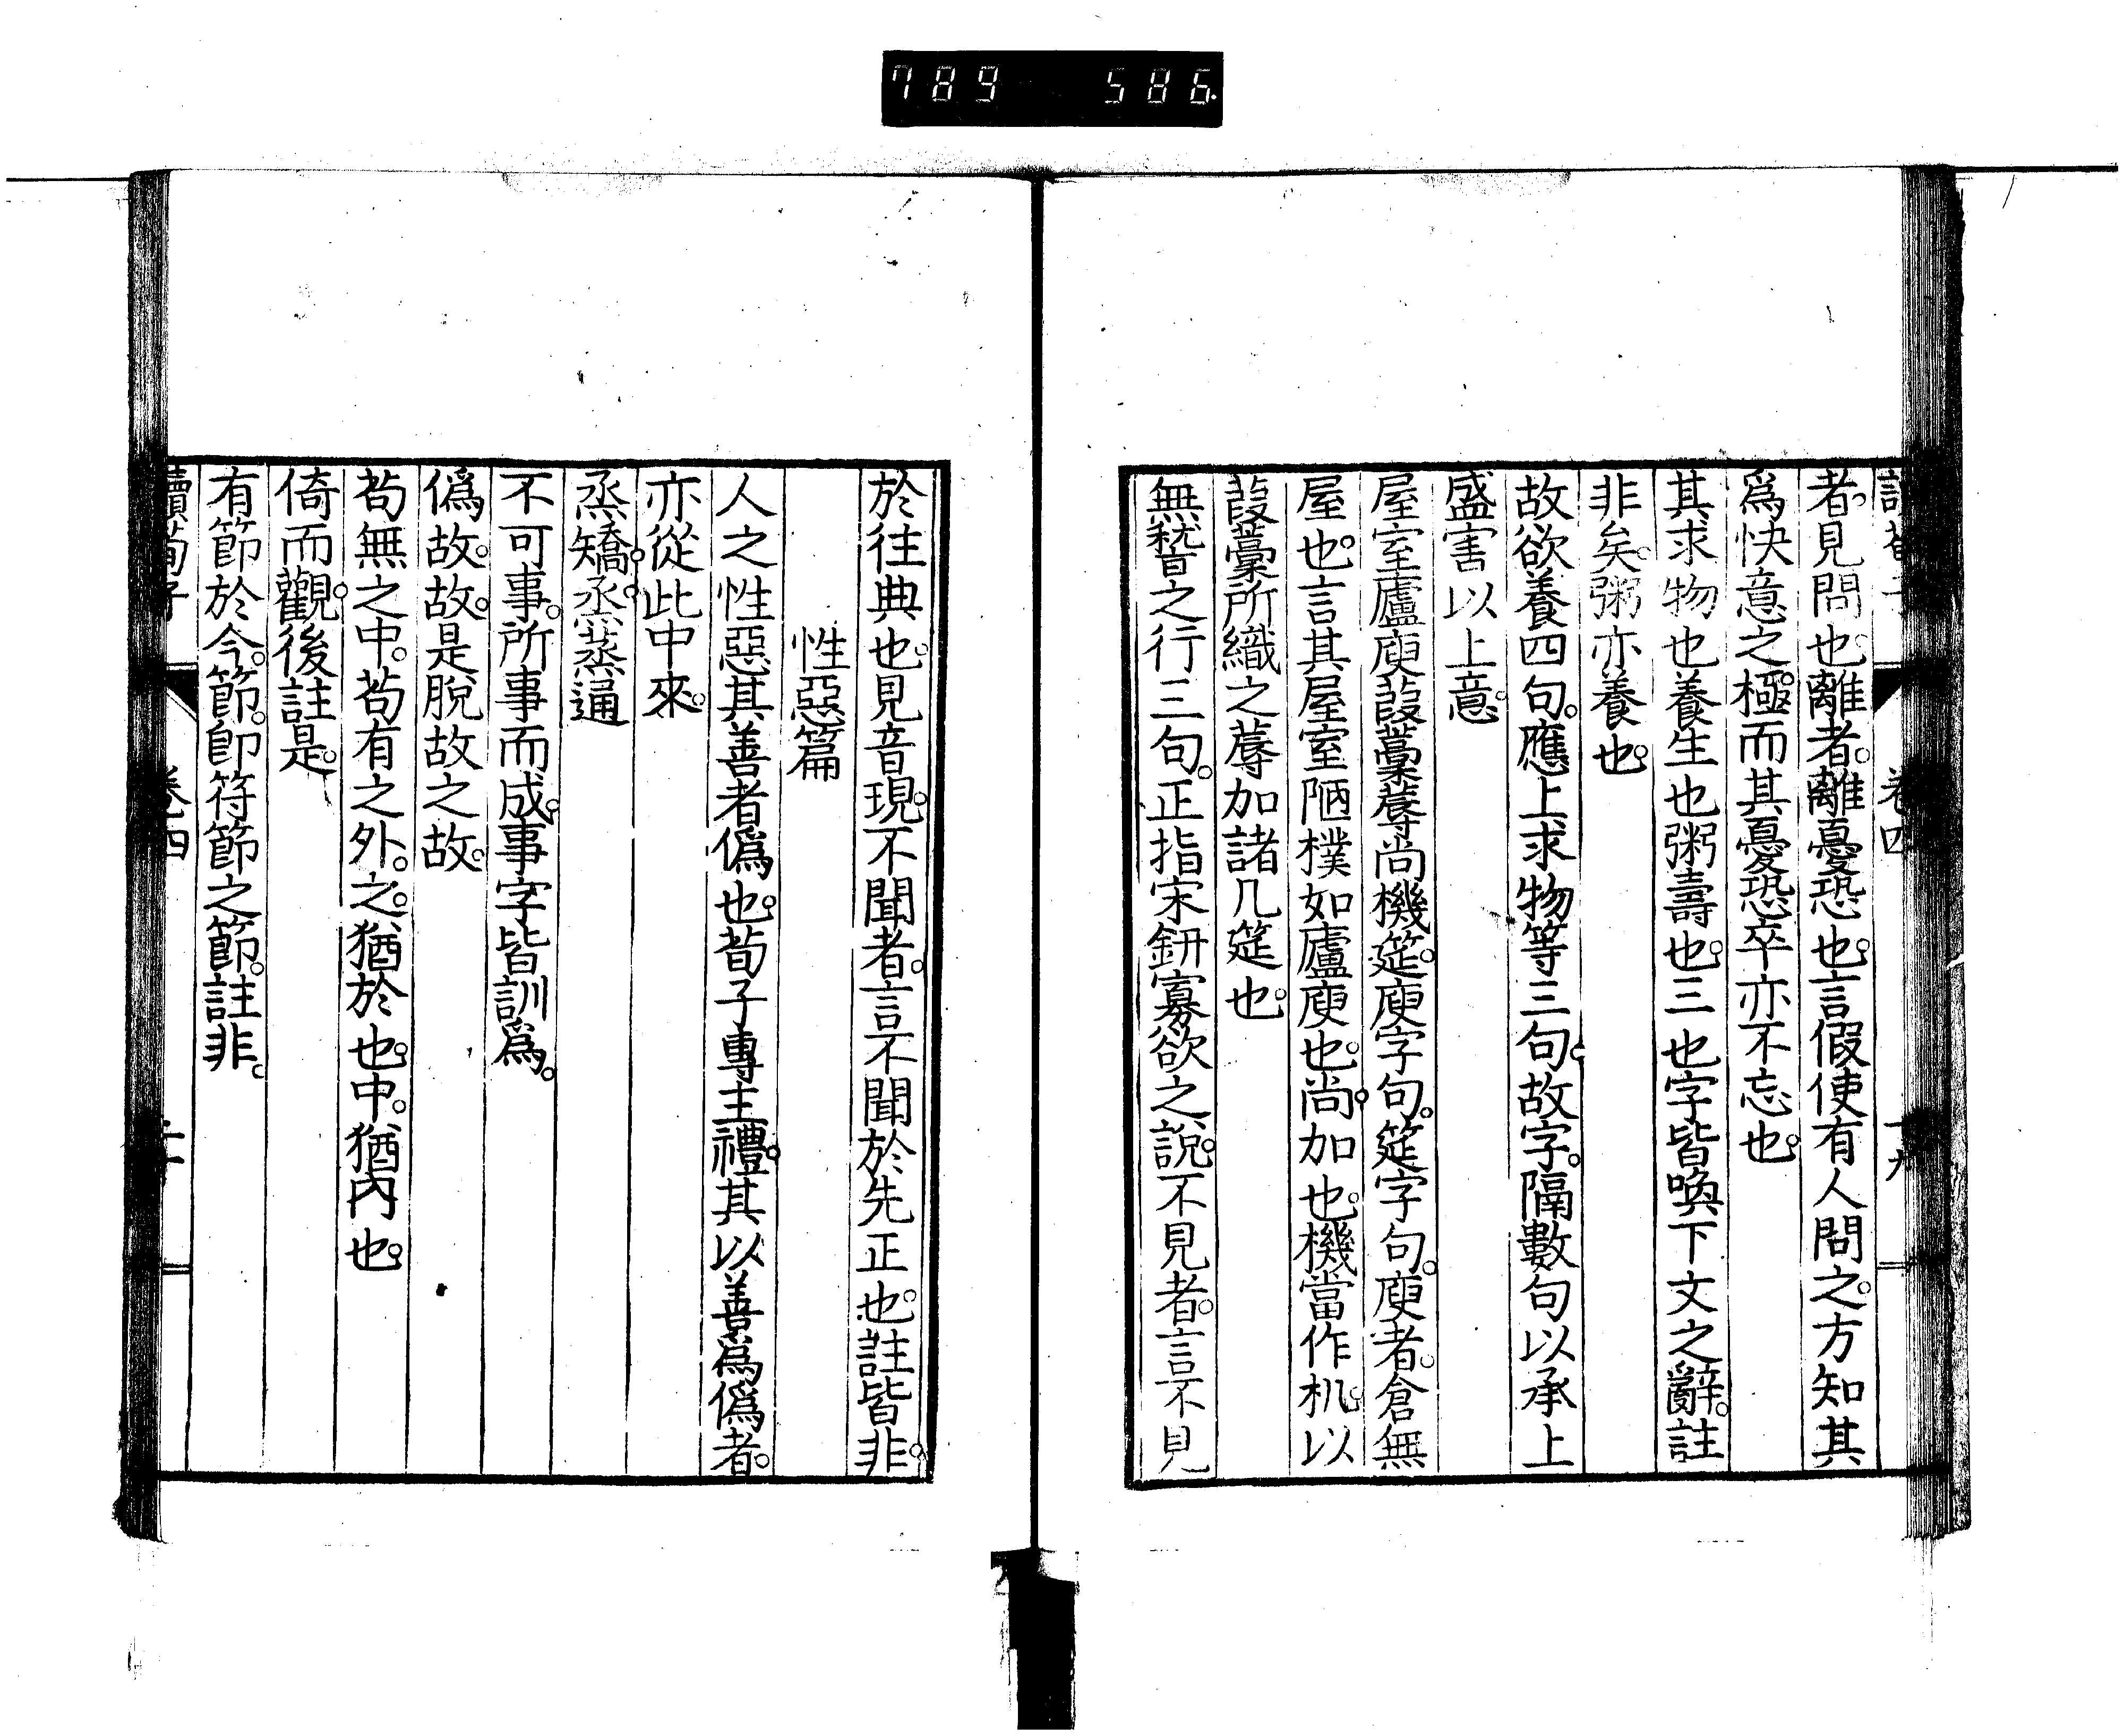 789 586
讀荀子 卷四 十九
者。見問也。離者。離憂恐也。言假使有人問之。方知其
爲快意之極。而其憂恐卒亦不忘也。
其求物也養生也粥壽也。三也字皆喚下文之辭。註
非矣。粥亦養也。
故欲養四句。應上求物等三句。故字。隔數句以承上
盛害以上意。
屋室廬庾葭藁蓐尚機筵。庾字句。筵字句。庾者。倉無
屋也。言其屋室陋樸如廬庾也。尚。加也。機當作机。以
葭藁所織之蓐加諸几筵也。
無稽之行三句。正指宋鈃寡欲之說。不見者。言不見
於往典也。見音現。不聞者。言不聞於先正也。註皆非。
性惡篇
人之性惡其善者僞也。荀子專主禮。其以善爲僞者。
亦從此中來。
烝矯。烝蒸通
不可事。所事而成。事字皆訓爲。
僞故。故。是脫故之故。
苟無之中。苟有之外。之。猶於也。中。猶內也。
倚而觀。後註是。
有節於今。節。卽符節之節。註非。
讀荀子 卷四 二十